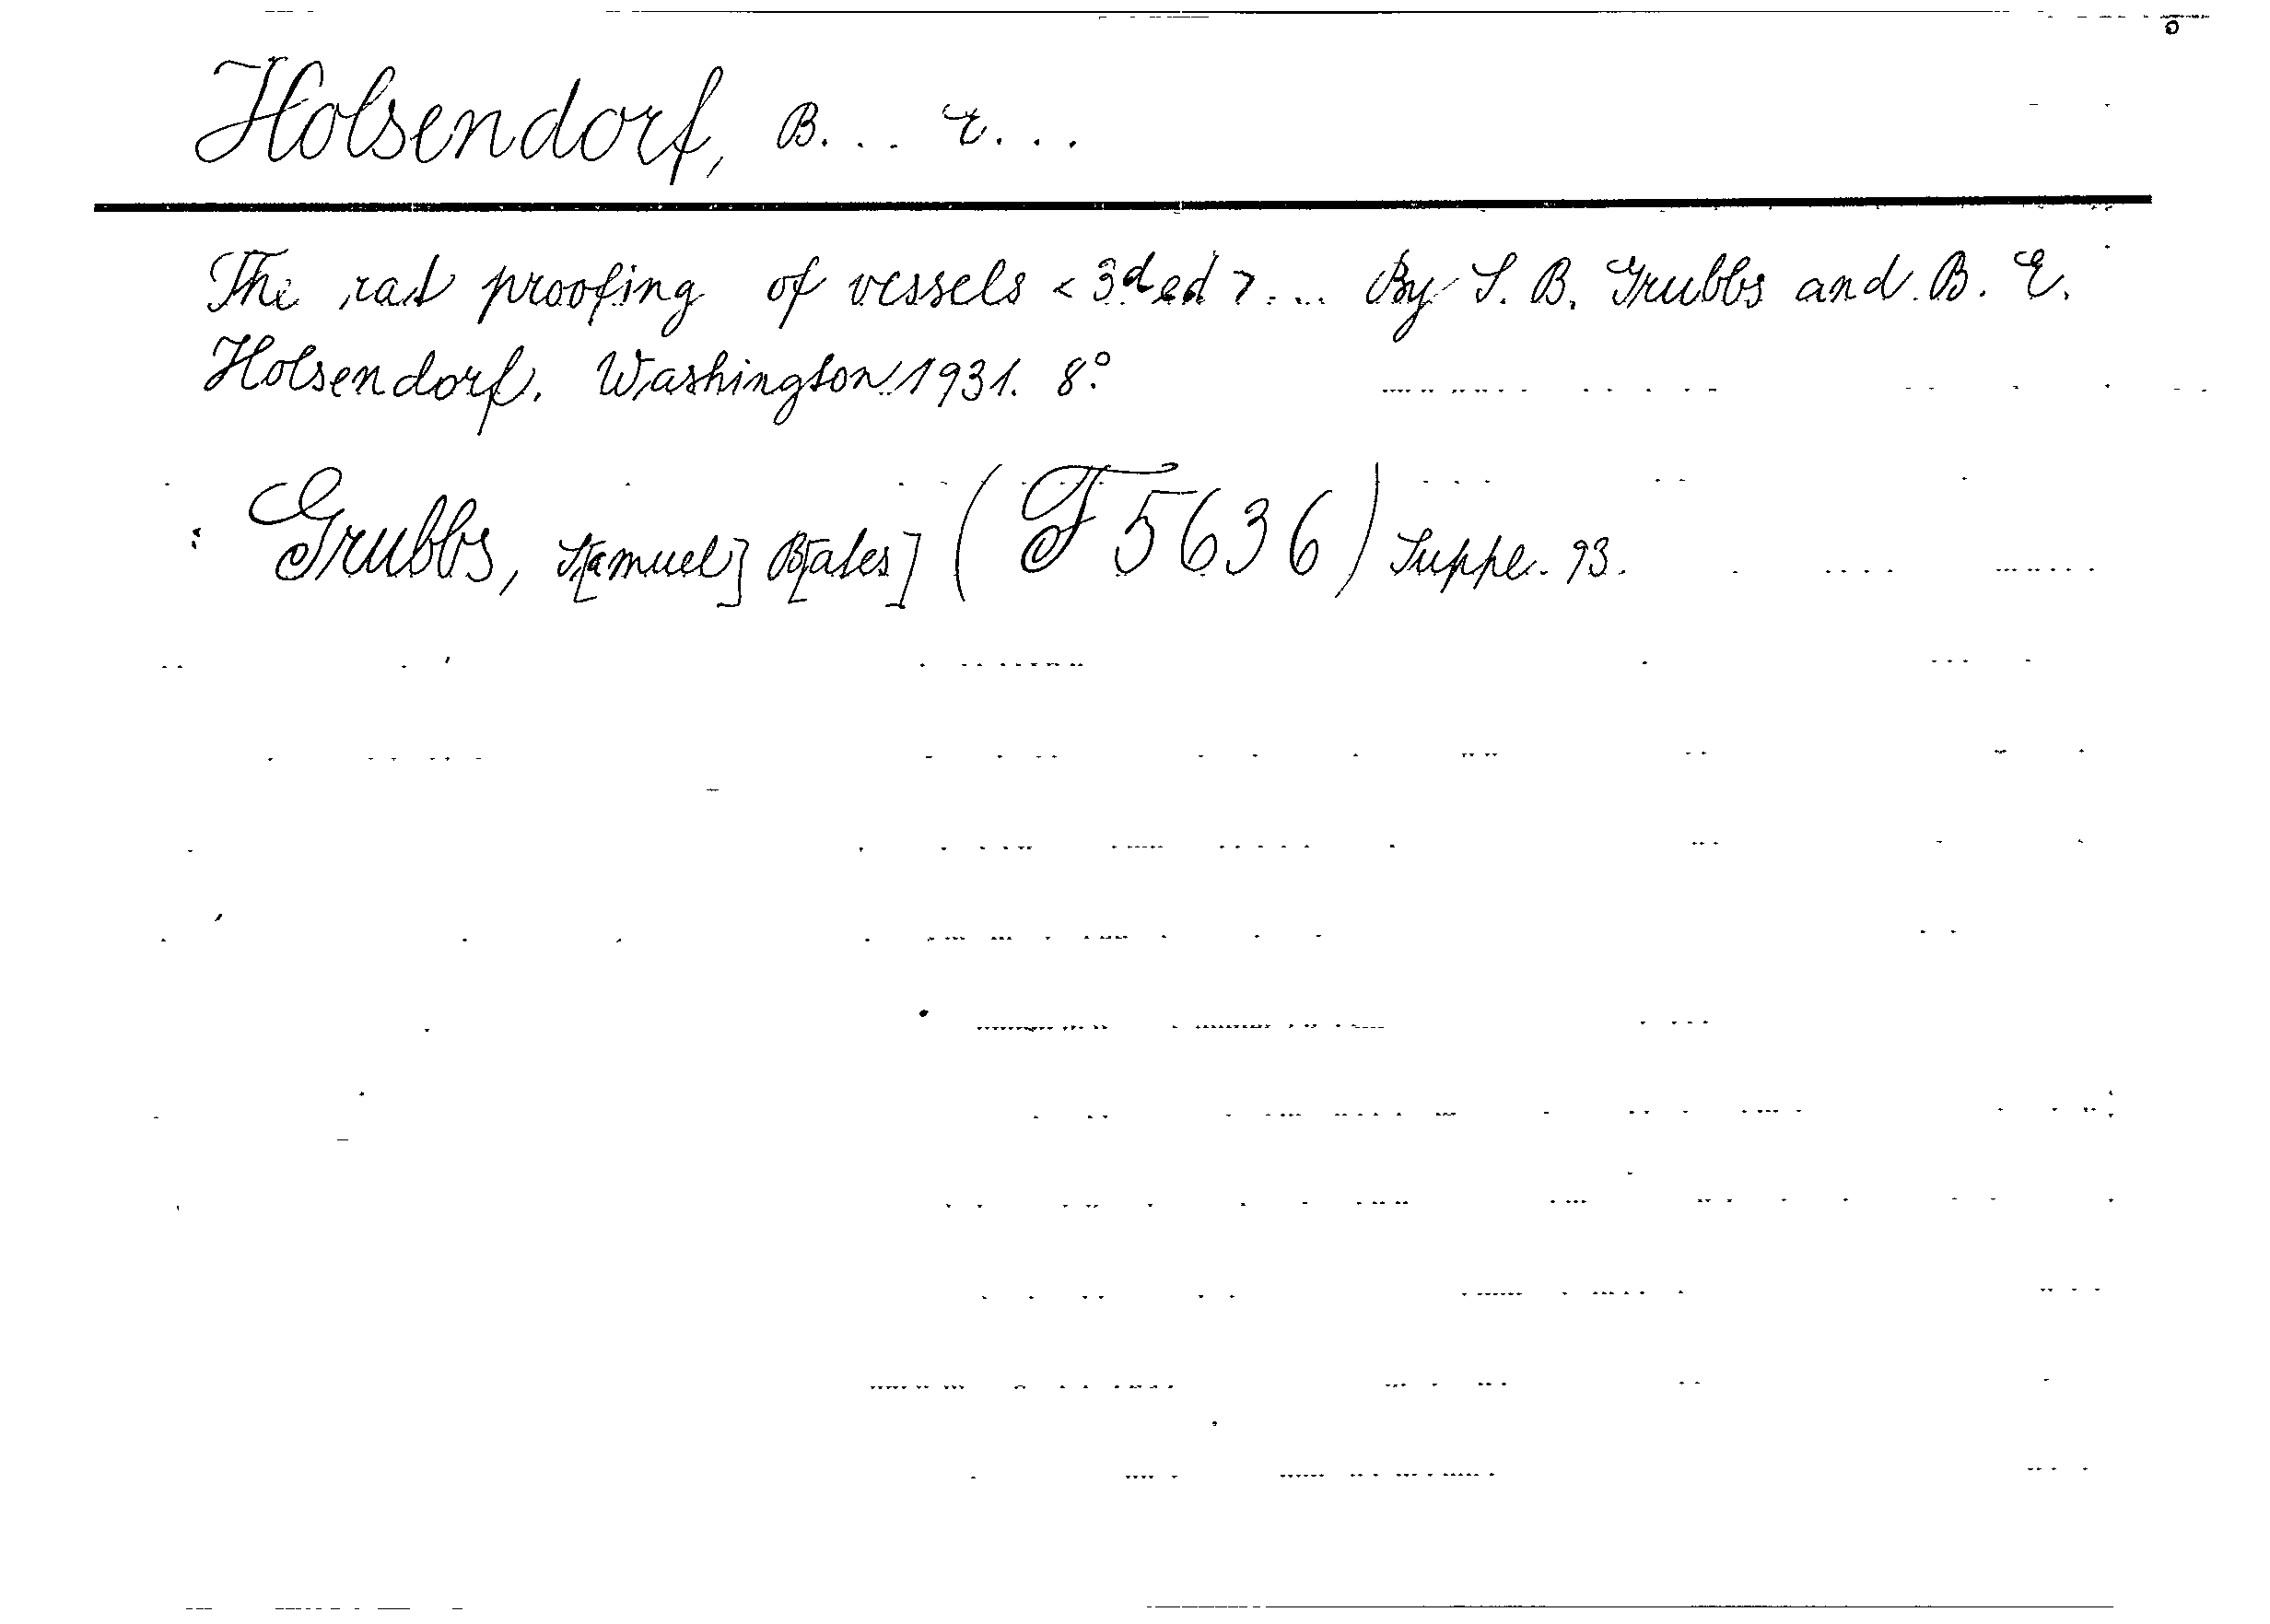 Holsendorf, B... E...
The rat proofing of vessels <3d ed>... By S. B. Grubbs and B. E.
Holsendorf. Washington 1931. 8°
: Grubbs, S[amuel] B[ates] (F 5636) Suppl. 93.